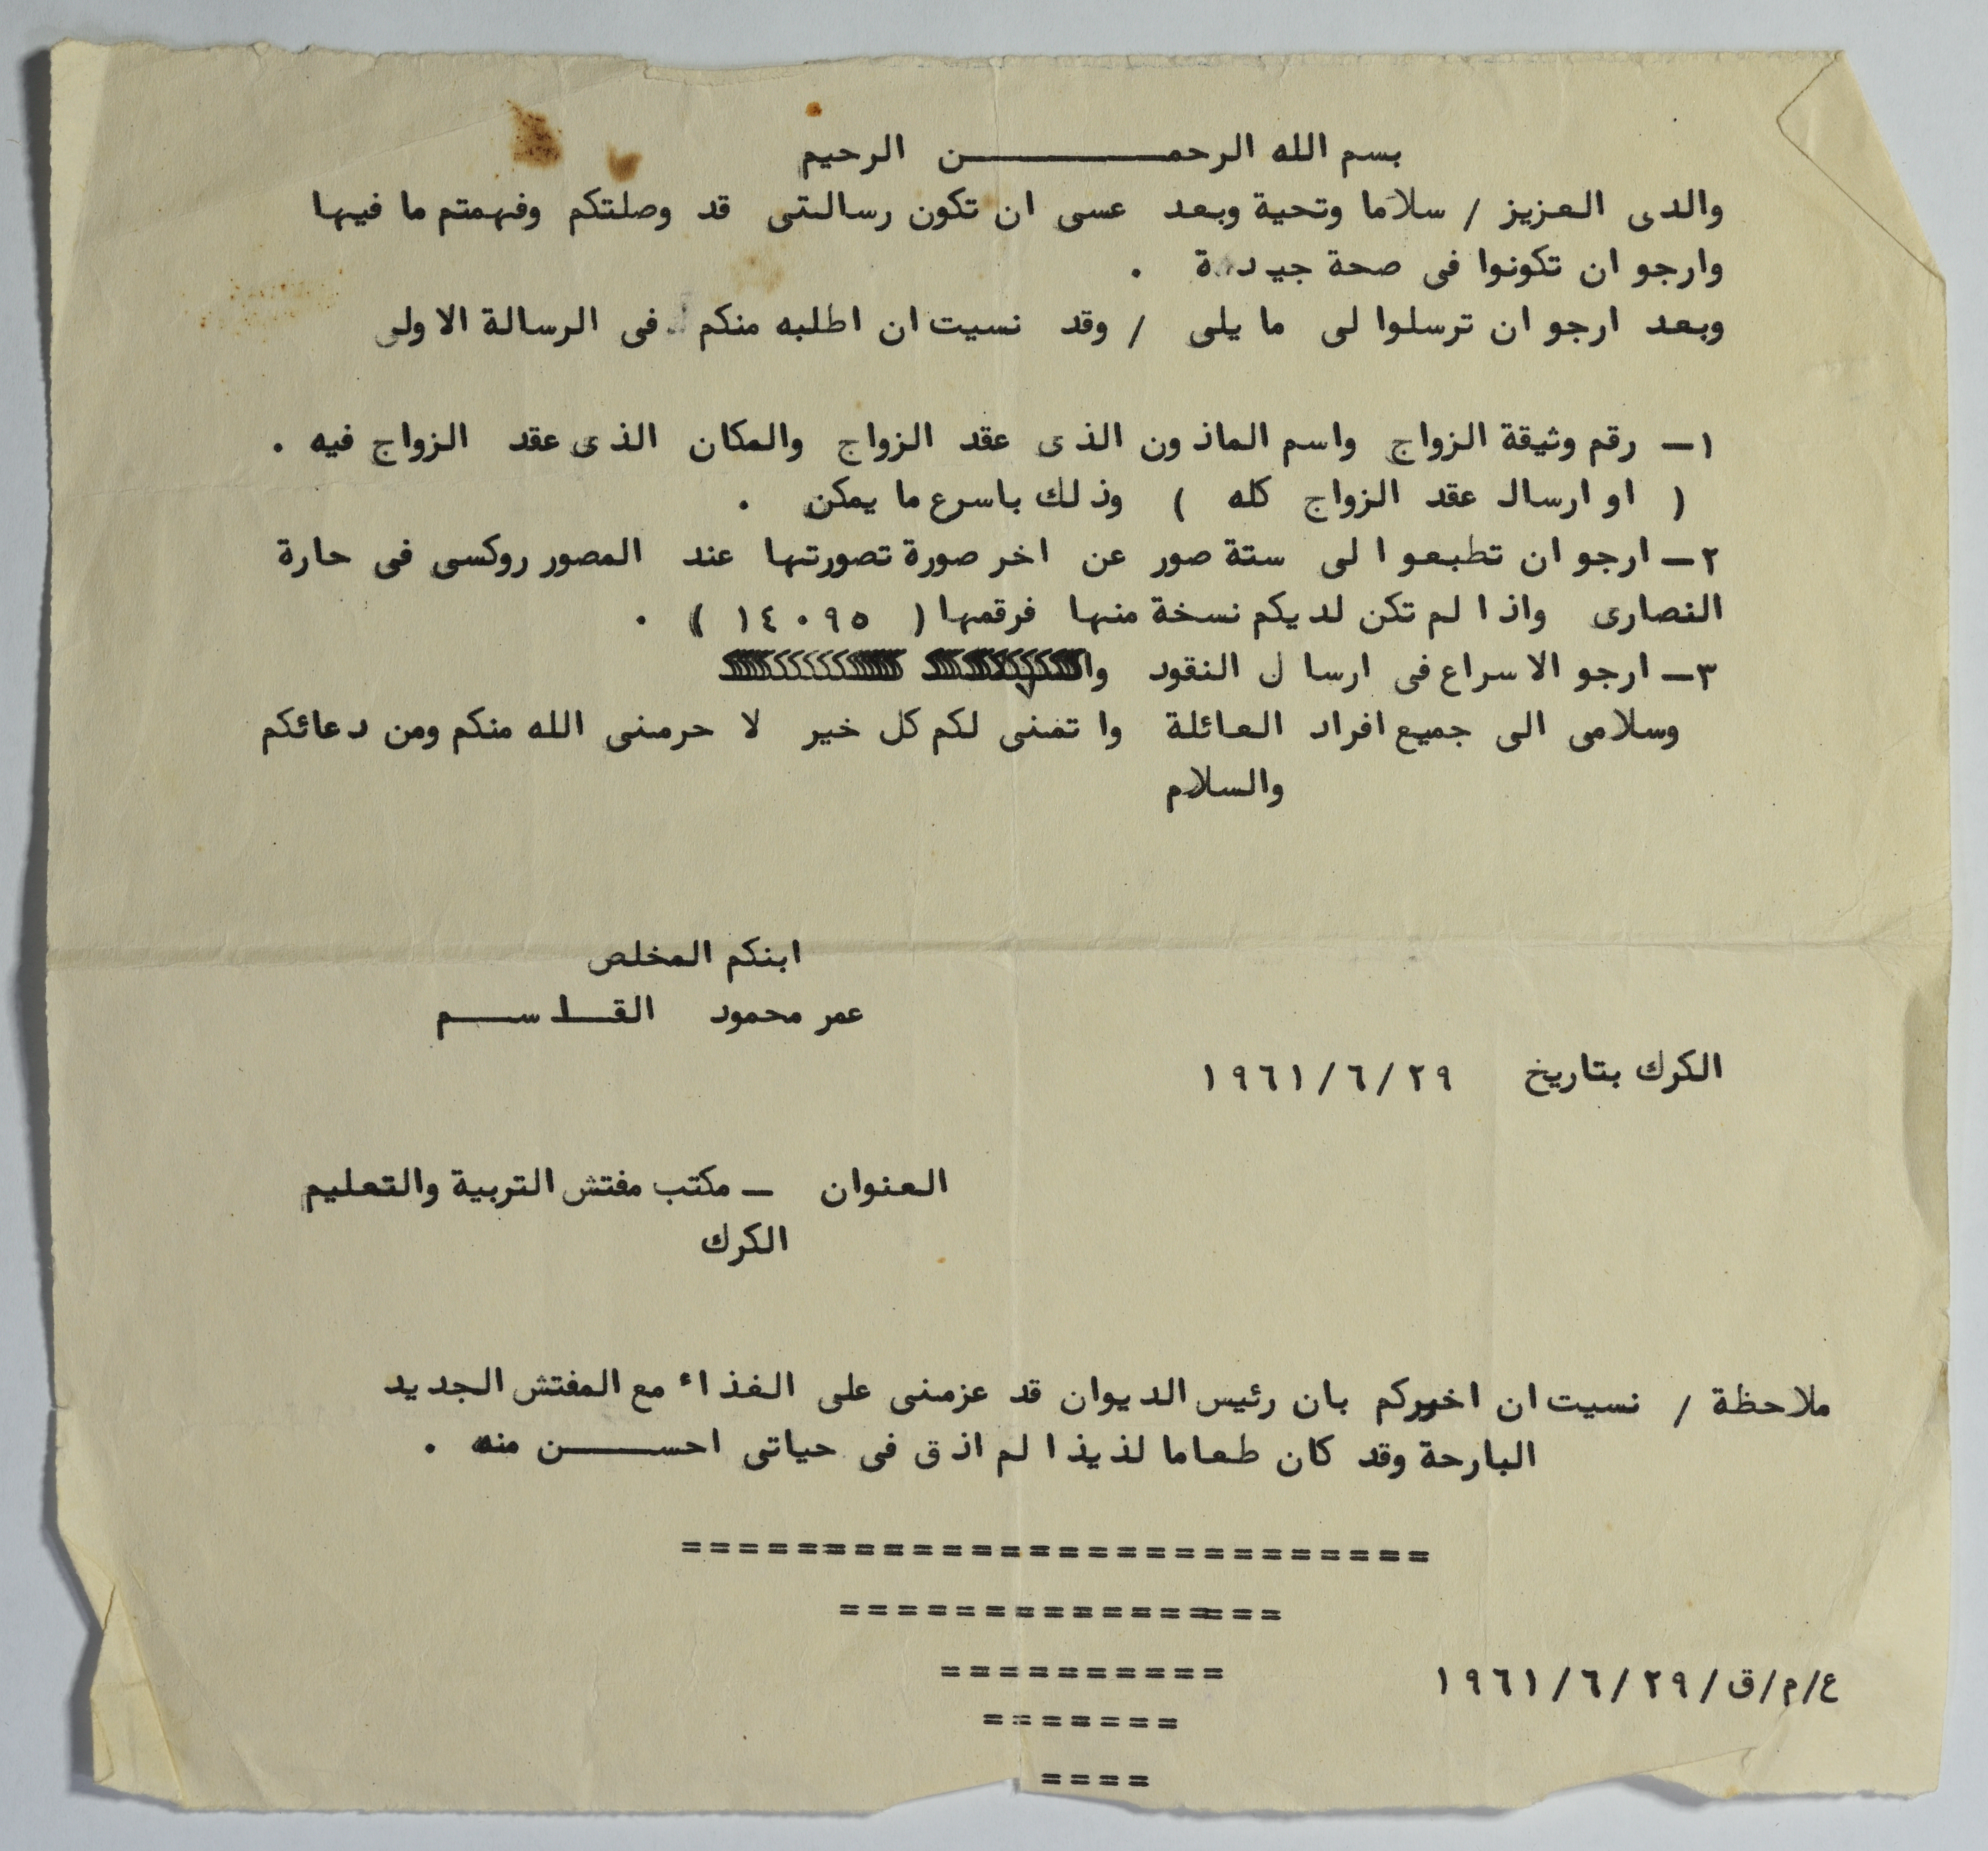 بسم الله الرحمـــــــــن الرحيم
والدى العزيز / سلاما وتحية وبعد عسى ان تكون رسالتى قد وصلتكم وفهمتم ما فيها
وارجو ان تكونوا فى صحة جيدة .
وبعد ارجو ان ترسلوا لى ما يلى / وقد نسيت ان اطلبه منكم فى الرسالة الاولى
١ـ رقم وثيقة الزواج واسم الماذون الذى عقد الزواج والمكان الذى عقد الزواج فيه .
( او ارسال عقد الزواج كله ) وذلك باسرع ما يمكن .
٢ـ ارجو ان تطبعوا لى ستة صور عن اخر صورة تصورتها عند المصور روكسى فى حارة
النصارى واذا لم تكن لديكم نسخة منها فرقمها ( ١٤٠٩٥ ) .
٣ـ ارجو الاسراع فى ارسال النقود
وسلامى الى جميع افراد العائلة واتمنى لكم كل خير لا حرمنى الله منكم ومن دعائكم
والسلام
ابنكم المخلص
عمر محمود القـــاســـم
الكرك بتاريخ ٢٩/٦/١٩٦١
العنوان ـ مكتب مفتش التربية والتعليم
الكرك
ملاحظة / نسيت ان اخبركم بان رئيس الديوان قد عزمنى على الغذاء مع المفتش الجديد
البارحة وقد كان طعاما لذيذا لم اذق فى حياتى احســـــن منه .
==========================
===============
==========
ع/م/ق/٢٩/٦/١٩٦١
=======
====